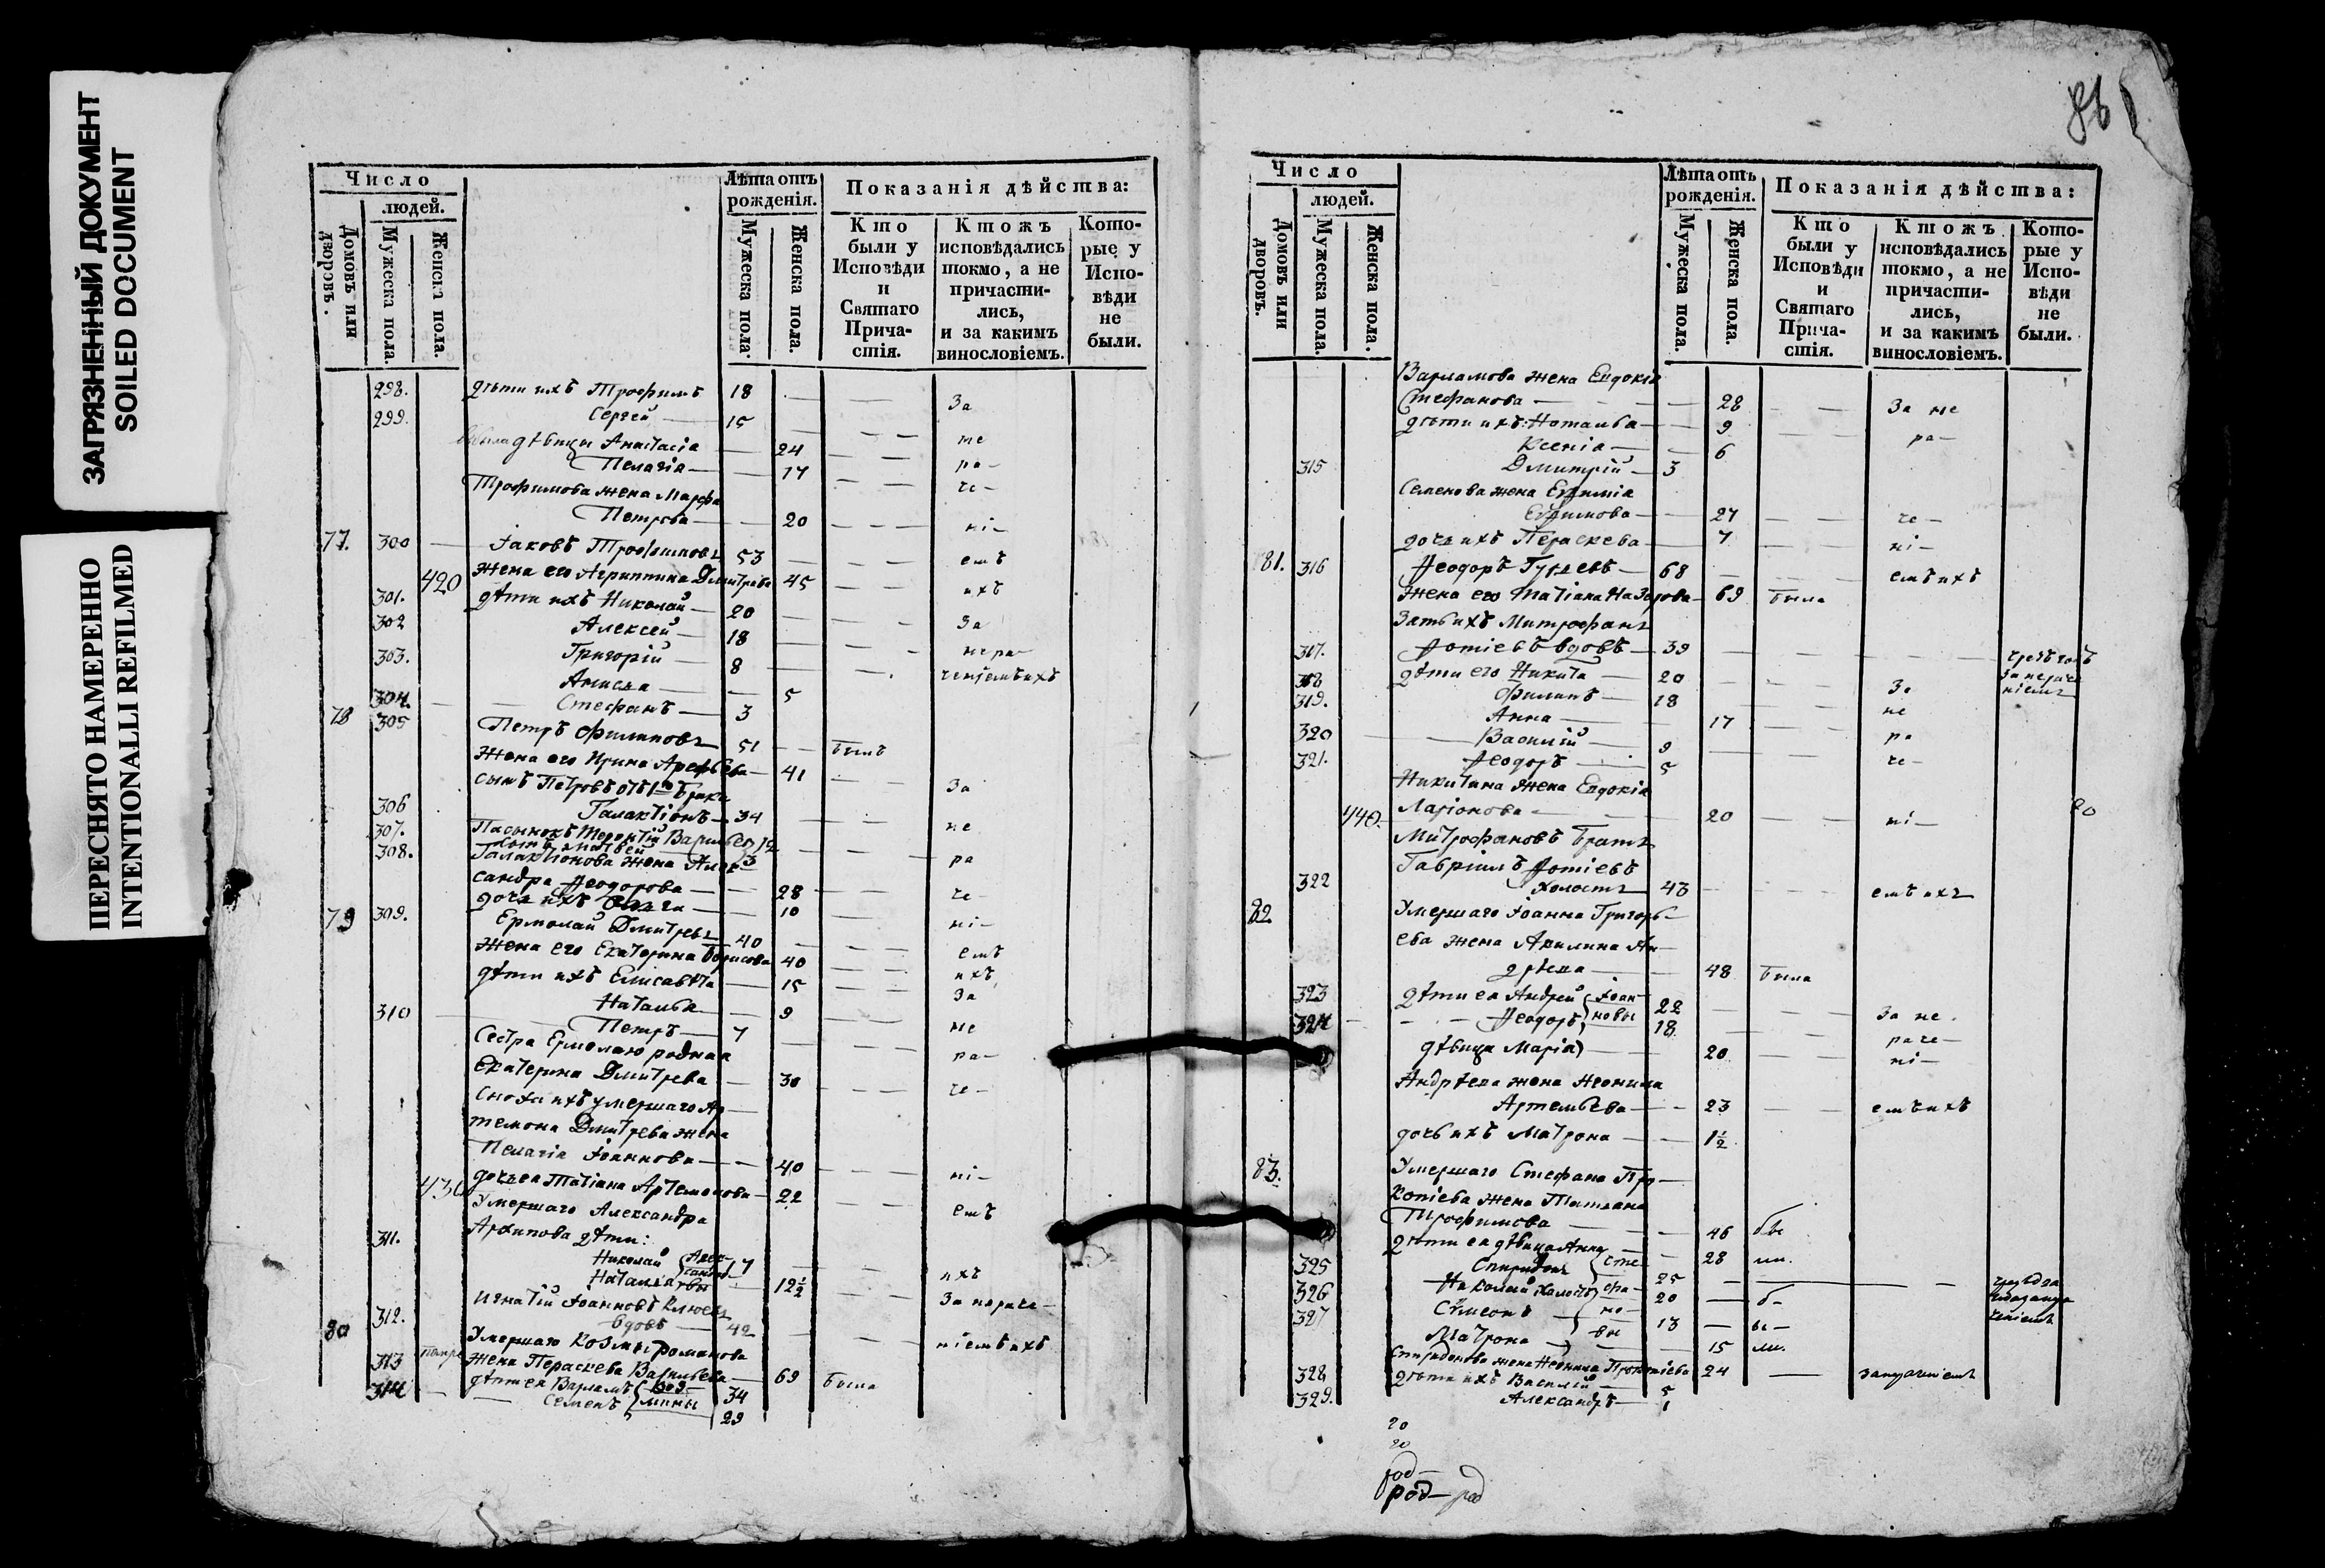 ЗАГРЯЗНЕННЫЙ ДОКУМЕНТ
SOILED DOCUMENT
ПЕРЕСНЯТО НАМЕРЕННО
INTENTIONALLI REFILMED
Число
людей.
Домовъ или дворовъ.
Мужеска пола.
Женска пола.
Лѣта отъ рожденія.
Мужеска пола.
Женска пола.
Показанія дѣйства:
Кто были у Исповѣди и Святаго Прича-стія.
Ктожъ исповѣдались токмо, а не причасти-лись, и за какимъ винословіемъ.
Кото-рые у Испо-вѣди не были.
298. дѣти ихъ Трофимъ 18
За
299. Сергей 15
дѣвицы Анастасіа 24 не
Пелагіа 17 ра-
Трофимова жена Марфа че-
Петрова 20 ні-
77. 300 Іаковъ Трофимовъ 53 емъ
420 жена его Агриппина Дмитрева 45 ихъ
301. дѣти ихъ Николай 20
За
302 Алексей 18
нера-
303. Григорій 8
ченіемъ ихъ
Анисіа 5
304. Стефанъ 3
78 305 Петръ Филиповъ 51 былъ
жена его Ирина Арефьева 41
За
сынъ Петровъ отъ 1го брака
306 Галактіонъ 34 не
307. Пасынокъ Терентій Васильевъ 12
308. сынъ Матвей 3 ра
Галактіонова жена Алек-
сандра Ѳеодорова 28 че-
дочь ихъ 10
79 309. Ермолай Дмитревъ 40 ні-
жена его Екатерина Борисова 40 емъ
дѣти ихъ Елисавета 15 ихъ
За
Наталья 9
310 Петръ 7 не
Сестра Ермолаю родная ра-
Екатерина Дмитрева 30 че-
Сноха ихъ умершаго Ар-
темона Дмитрева жена
Пелагіа Іоаннова 40 ні-
430 дочь ея Татіана Артемонова 22
емъ
Умершаго Александра
Архипова дѣти:
311. Николай Алек- 17
Наталіа санд- вы 12½ ихъ
За нераче-
312. Игнатій Іоанновъ
вдовъ 42
ніемъ ихъ
80 Умершаго Козмы Романова
жена Параскева Васильева 69 была
313 дѣти ея Варламъ Коз- 34
314 Семенъ мины 29
86
Число
людей.
Домовъ или дворовъ.
Мужеска пола.
Женска пола.
Лѣта отъ рожденія.
Мужеска пола.
Женска пола.
Показанія дѣйства:
Кто были у Исповѣди и Святаго Прича-стія.
Ктожъ исповѣдались токмо, а не причасти-лись, и за какимъ винословіемъ.
Кото-рые у Испо-вѣди не были.
Варламова жена Евдокіа
Стефанова 28 За не
дѣти ихъ: Наталья 9
ра-
Ксеніа 6
315 Дмитрій 3
Семенова жена Евфиміа
Евфимова 27 че-
дочь ихъ Параскева 7 ні-
81. 316 Ѳеодоръ Гурьевъ 68 емъ ихъ
жена его Татіана Назарова 69 была
Зать ихъ Митрофанъ
317. Ѳотіевъ вдовъ 39
318 дѣти его Никита 20
За
За нераче
ніемъ
319. Филипъ 18
не
Анна 17
320 Василій 9 ра
321. Ѳеодоръ 5 че-
Никитина жена Евдокіа
440. Ларіонова 20 ні-
20
Митрофановъ братъ
Гавріилъ Ѳотіевъ
322 холостъ 43 емъ ихъ
82 Умершаго Іоанна Григорь-
ева жена Акилина Ан-
дрѣева 48 была
323 дѣти ея Андрей Іоан- 22 За не
324 Ѳеодоръ новы 18
раче-
дѣвица Маріа 20 ні-
Андрѣева жена Неонила
Артемьева 23 емъ ихъ
дочь ихъ Матрона 1½
83. Умершаго Стефана Про-
копіева жена Татьяна
Трофимова 46 бы
дѣти ея дѣвица Анна 28 ли.
325 Спиридонъ Сте- 25
326 Николай холостъ фа- 20 б-
327 Сѵмеонъ но- 13 ы-
Матрона вы 15 ли.
Спиридонова жена Неонила Прокопіева 24
328 дѣти ихъ Василій 5
329. Александръ 1
20
20
род-
род- род